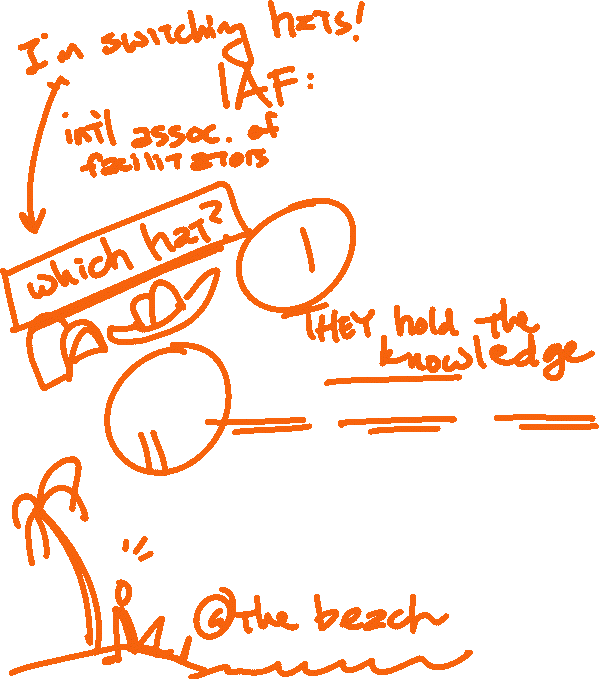 I'm switching hats!
IAF:
int'l assoc. of
facilitators
which hat?
THEY hold the
knowledge
@the beach